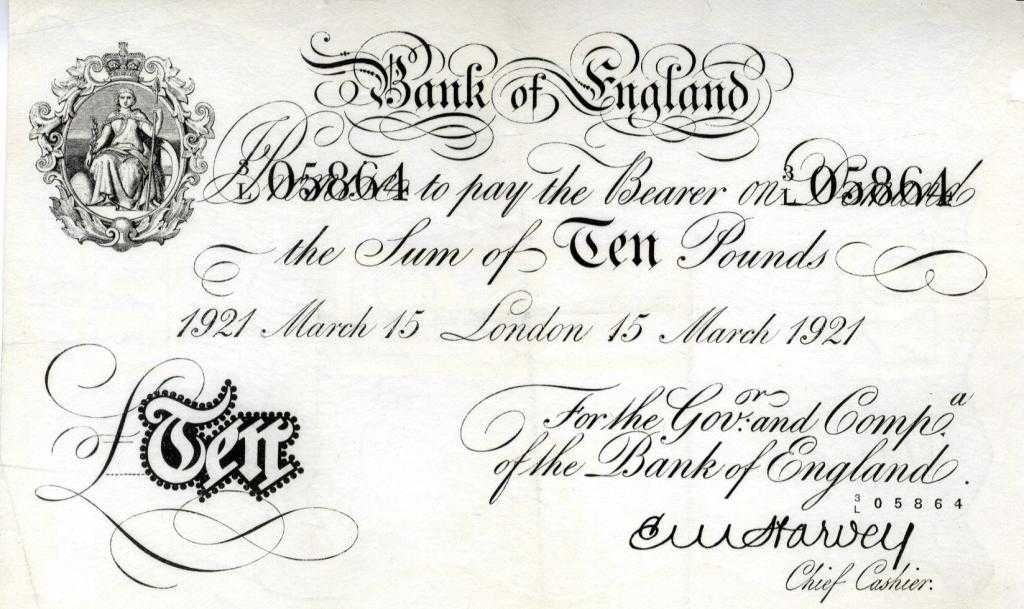 Bank of England
3/L 05864 I Promise to pay the Bearer on Demand 3/L 05864
the Sum of Ten Pounds
1921 March 15 London 15 March 1921
£Ten
For the Govr. and Compa.
of the Bank of England.
3/L 05864
E M Harvey
Chief Cashier.